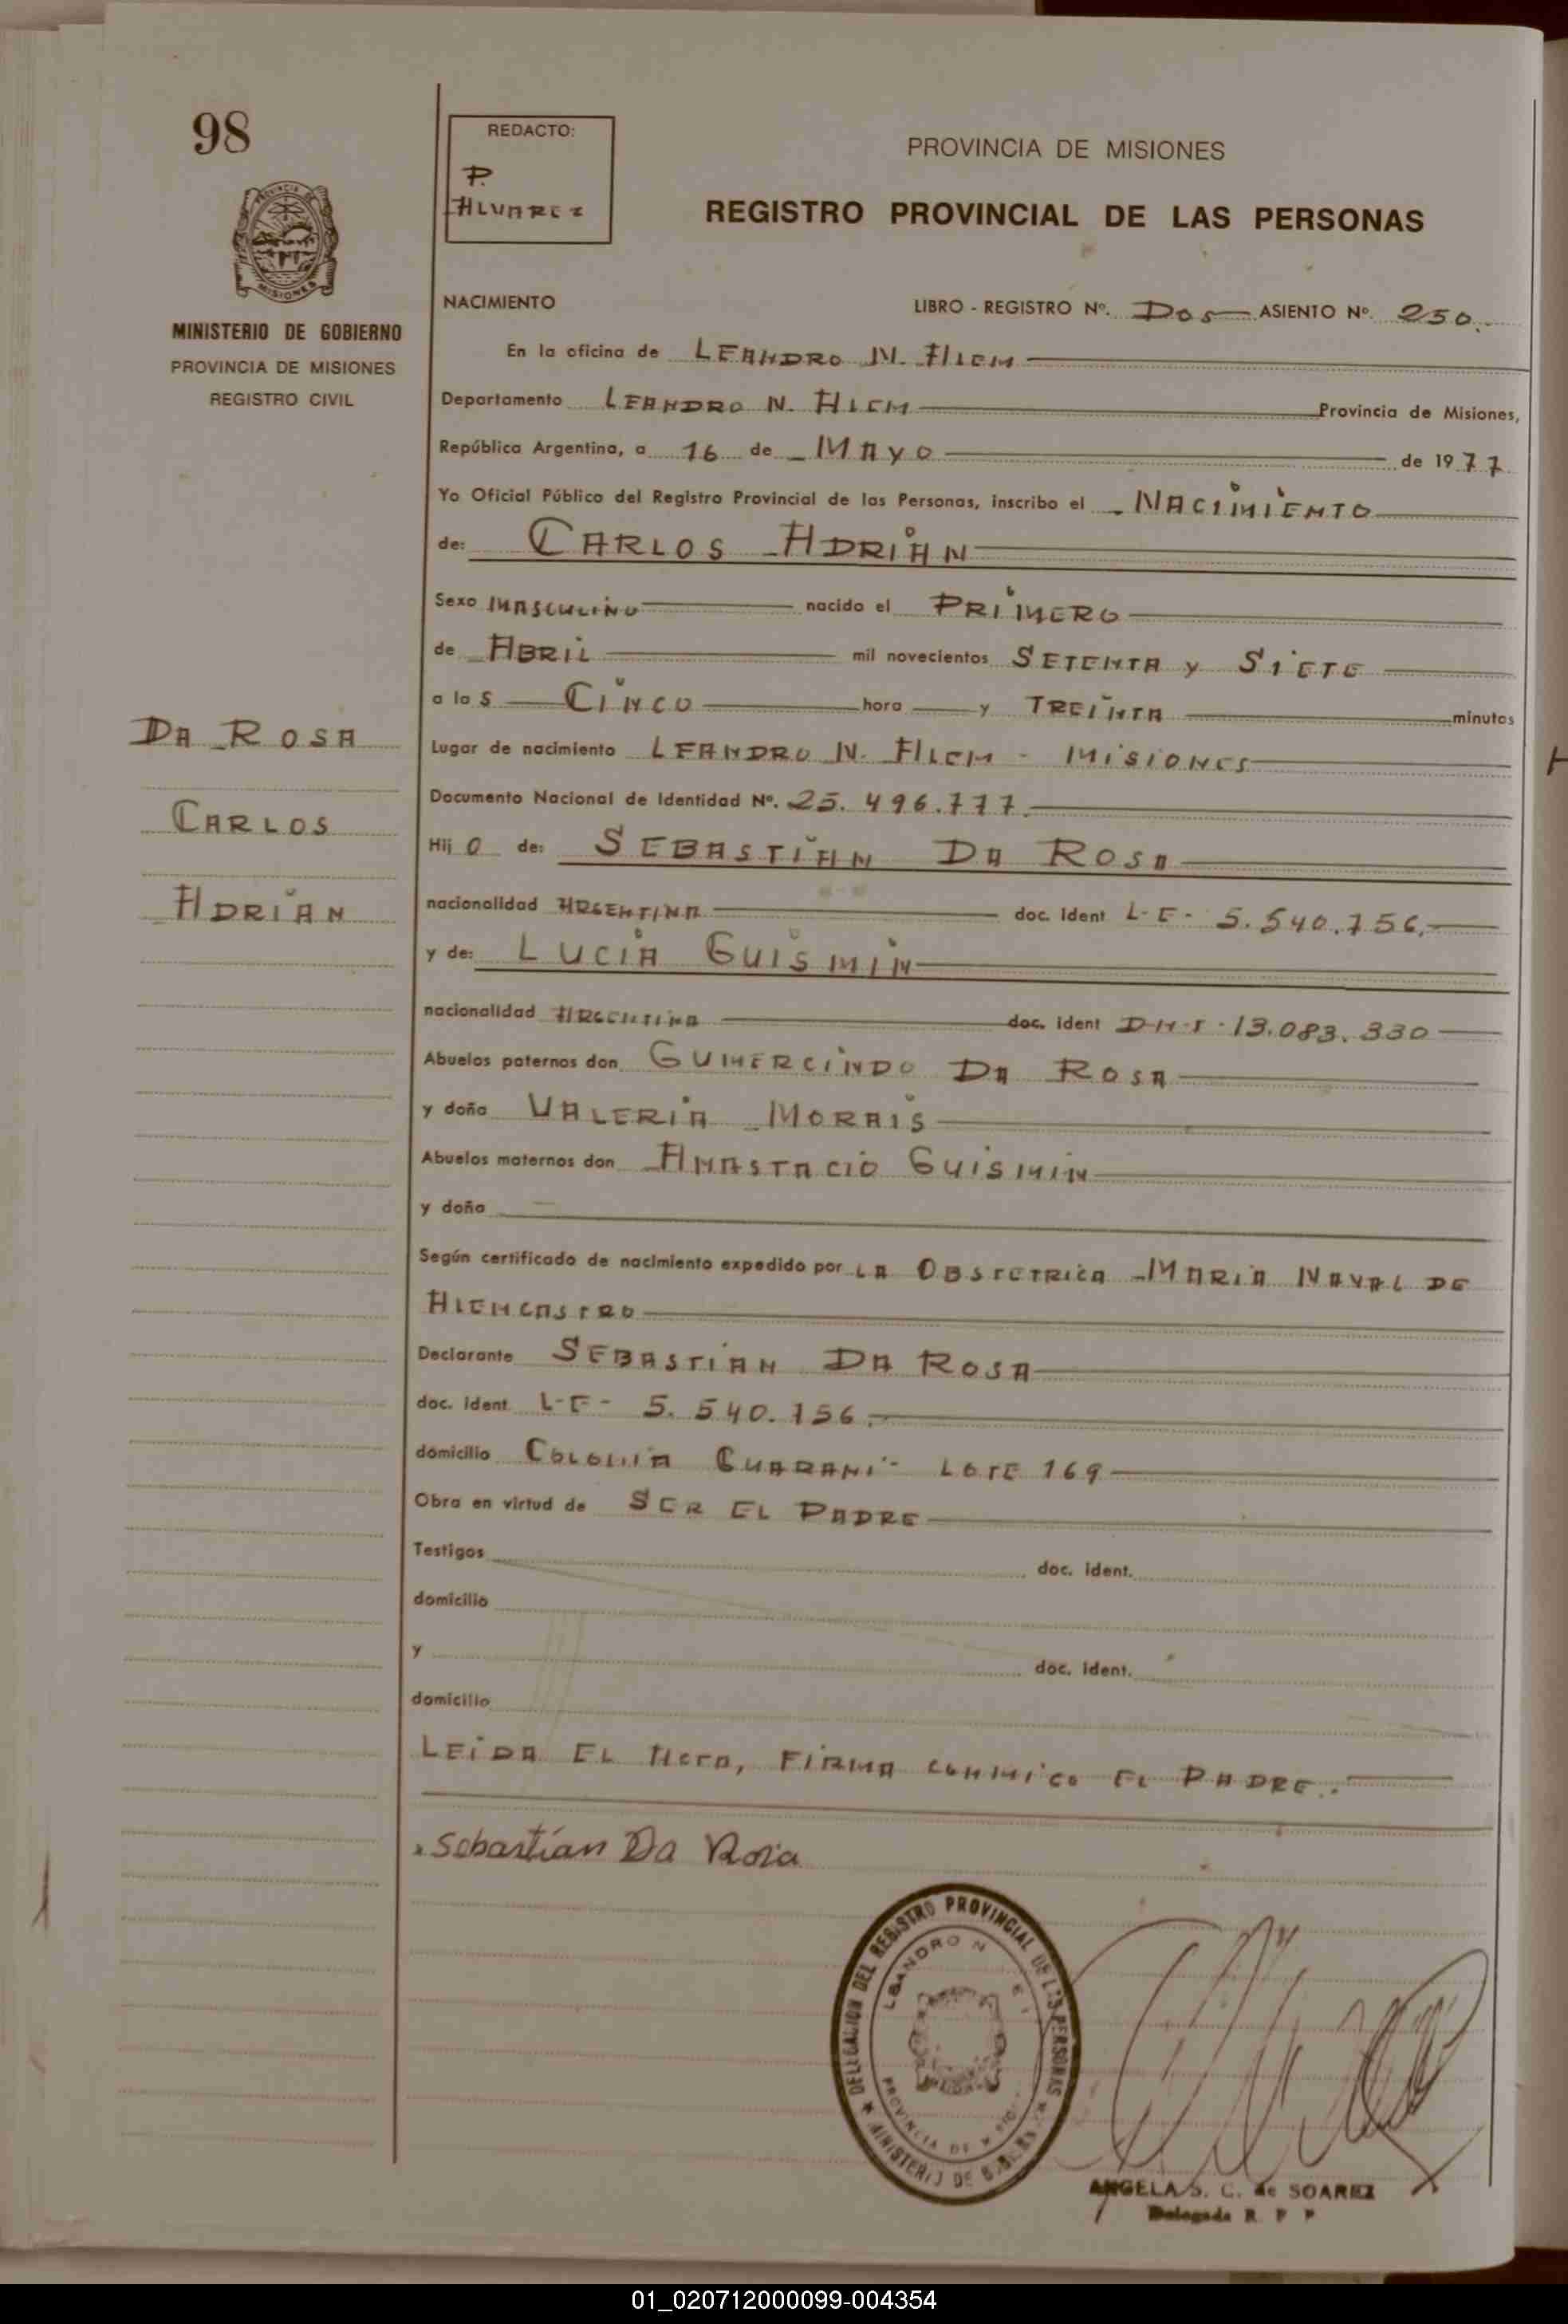 98
REDACTO:
P.
ALVAREZ
PROVINCIA DE MISIONES
REGISTRO PROVINCIAL DE LAS PERSONAS
PROVINCIA DE
MISIONES
MINISTERIO DE GOBIERNO
PROVINCIA DE MISIONES
REGISTRO CIVIL
NACIMIENTO LIBRO - REGISTRO Nº. DOS ASIENTO Nº. 250.
En la oficina de LEANDRO N. ALEM
Departamento LEANDRO N. ALEM Provincia de Misiones,
República Argentina, a 16 de MAYO de 1977
Yo Oficial Público del Registro Provincial de las Personas, inscribo el NACIMIENTO
de: CARLOS ADRIAN
Sexo MASCULINO nacido el PRIMERO
de ABRIL mil novecientos SETENTA y SIETE
a las CINCO hora y TREINTA minutos
Lugar de nacimiento LEANDRO N. ALEM - MISIONES
Documento Nacional de Identidad Nº. 25.496.777.
Hijo de: SEBASTIAN DA ROSA
nacionalidad ARGENTINA doc. Ident L-E- 5.540.756.
y de: LUCIA GUISMIN
nacionalidad ARGENTINA doc. ident D-N-I-13.083.330
Abuelos paternos don GUMERCINDO DA ROSA
y doña VALERIA MORAIS
Abuelos maternos don ANASTACIO GUISMIN
y doña —
Según certificado de nacimiento expedido por LA OBSTETRICA MARIA NAVAL DE
ALEMCASTRO
Declarante SEBASTIAN DA ROSA
doc. ident L-E- 5.540.756.
domicilio COLONIA GUARANI- LOTE 169
Obra en virtud de SER EL PADRE
Testigos doc. ident.
domicilio
y doc. ident.
domicilio
LEIDA EL ACTA, FIRMA CONMIGO EL PADRE.
DA ROSA
CARLOS
ADRIAN
Sebastián Da Rosa
DELEGACION DEL REGISTRO PROVINCIAL DE LAS PERSONAS
MINISTERIO DE GOBIERNO
LEANDRO N
PROVINCIA DE
ANGELA S. C. de SOAREZ
Delegada R P P
01_020712000099-004354